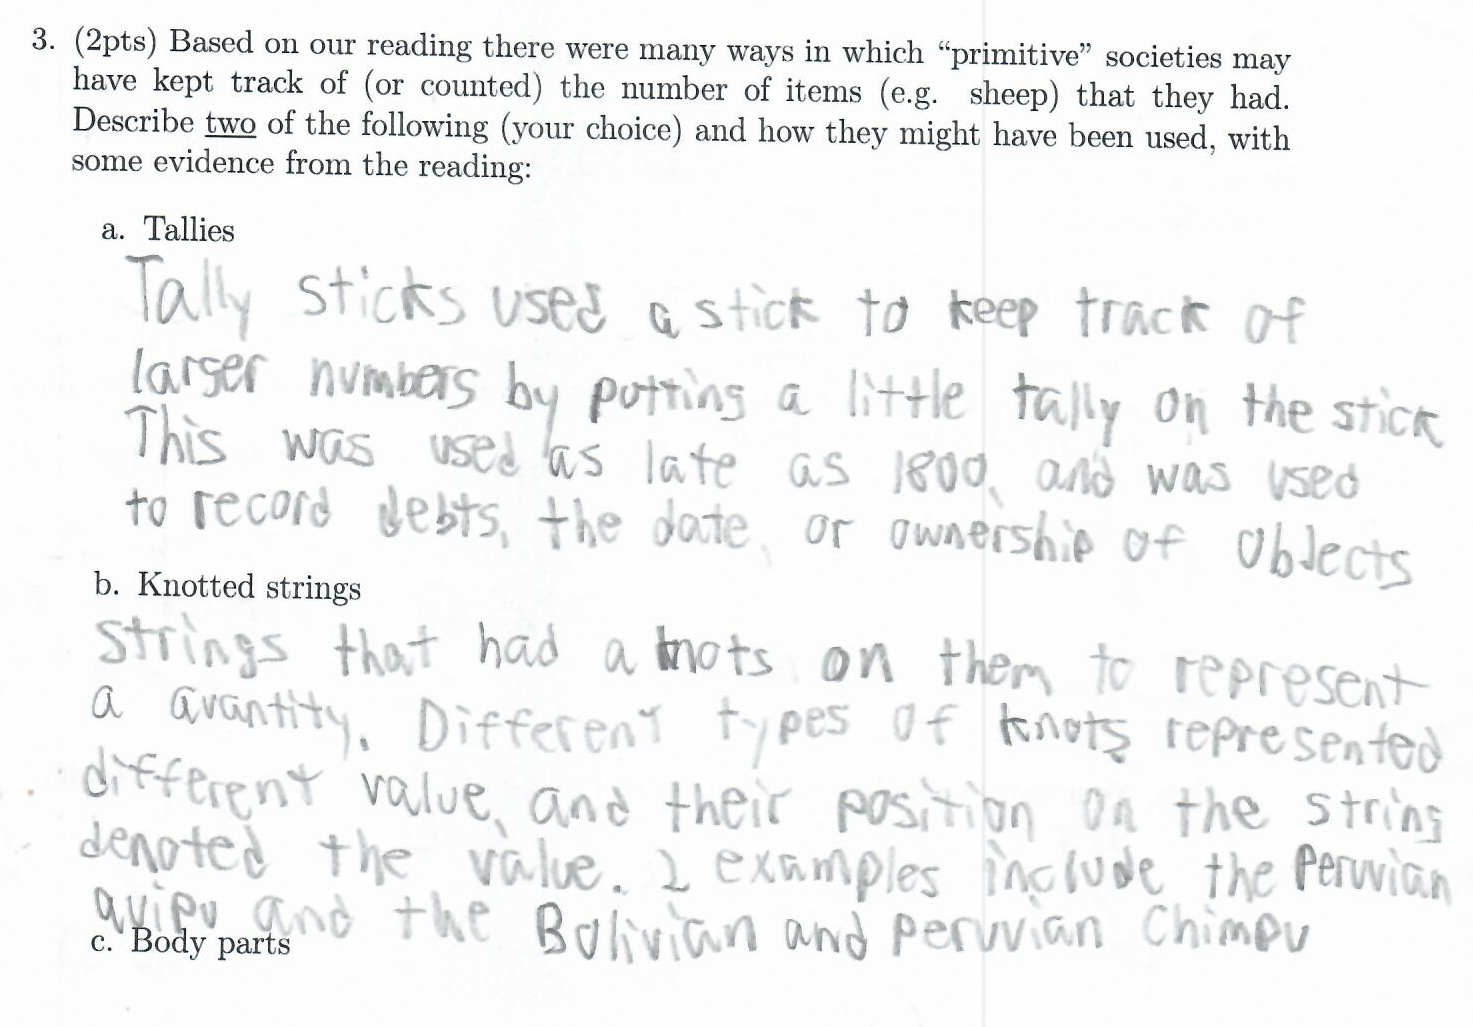 3. (2pts) Based on our reading there were many ways in which “primitive” societies may
have kept track of (or counted) the number of items (e.g. sheep) that they had.
Describe two of the following (your choice) and how they might have been used, with
some evidence from the reading:
a. Tallies
Tally sticks used a stick to keep track of
larger numbers by putting a little tally on the stick
This was used as late as 1800, and was used
to record debts, the date, or ownership of objects
b. Knotted strings
Strings that had a knots on them to represent
a quantity. Different types of knots represented
different value, and their position on the string
denoted the value. 2 examples include the Peruvian
quipu and the Bolivian and peruvian Chimpu
c. Body parts